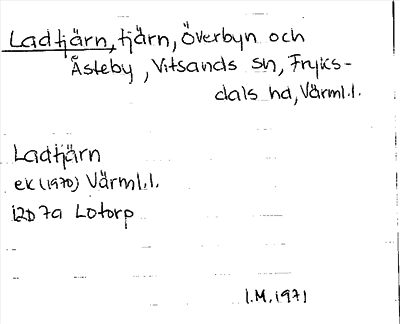 Ladtjärn, tjärn, Överbyn och
Åsteby, Vitsands sn, Fryks-
dals hd, Värml.l.
Ladtjärn
ek (1970) Värml.l.
12D 7a Lotorp
I.M. 1971